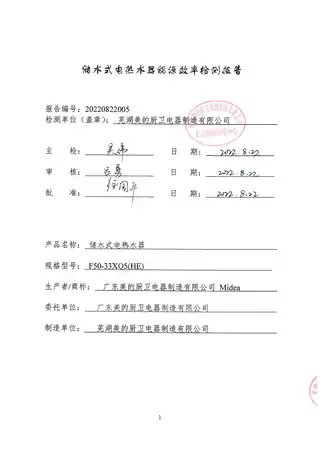 储水式电热水器能源效率检测报告
报告编号：20220822005
检测单位（盖章）：芜湖美的厨卫电器制造有限公司
主 检： 日 期：2022.8.22
审 核： 日 期：2022.8.22
批 准： 日 期：2022.8.22
产品名称：储水式电热水器
规格型号：F50-33XQ5(HE)
生产者/商标：广东美的厨卫电器制造有限公司 Midea
委托单位：广东美的厨卫电器制造有限公司
制造单位：芜湖美的厨卫电器制造有限公司
1